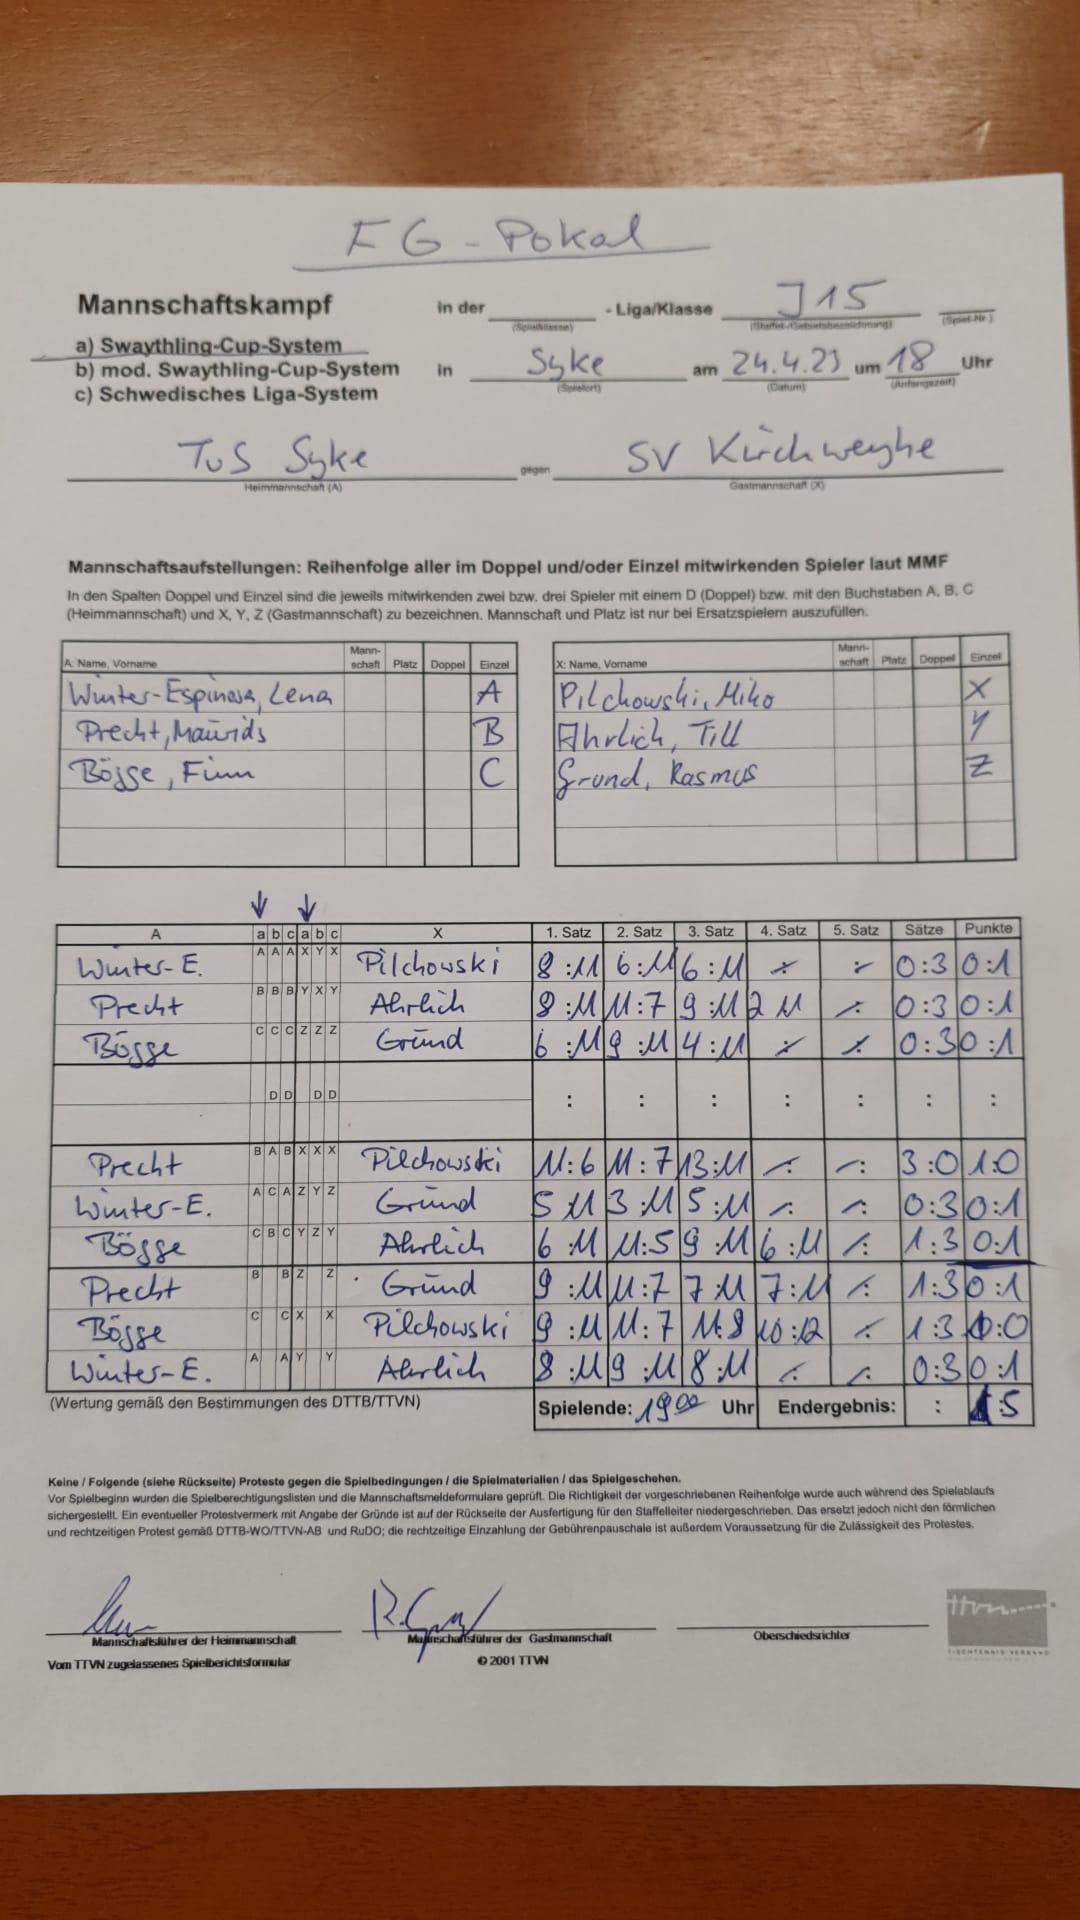 EG - Pokal
Mannschaftskampf in der - Liga/Klasse J15
(Spielklasse) (Staffel-/Gebietsbezeichnung) (Spiel-Nr.)
a) Swaythling-Cup-System
b) mod. Swaythling-Cup-System in Syke am 24.4.23 um 18 Uhr
(Spielort) (Datum) (Anfangszeit)
c) Schwedisches Liga-System
TuS Syke gegen SV Kirchweyhe
Heimmannschaft (A) Gastmannschaft (X)
Mannschaftsaufstellungen: Reihenfolge aller im Doppel und/oder Einzel mitwirkenden Spieler laut MMF
In den Spalten Doppel und Einzel sind die jeweils mitwirkenden zwei bzw. drei Spieler mit einem D (Doppel) bzw. mit den Buchstaben A, B, C
(Heimmannschaft) und X, Y, Z (Gastmannschaft) zu bezeichnen. Mannschaft und Platz ist nur bei Ersatzspielern auszufüllen.
A: Name, Vorname Mann-schaft Platz Doppel Einzel X: Name, Vorname Mann-schaft Platz Doppel Einzel
Winter-Espinosa, Lena A Pilchowski, Miko X
Precht, Maurids B Ahrlich, Till Y
Bögge, Finn C Grund, Rasmus Z
A a b c a b c X 1. Satz 2. Satz 3. Satz 4. Satz 5. Satz Sätze Punkte
Winter-E. A A A X Y X Pilchowski 8:11 6:11 6:11 : : 0:3 0:1
Precht B B B Y X Y Ahrlich 8:11 11:7 9:11 2 11 : 0:3 0:1
Bögge C C C Z Z Z Grund 6:11 9:11 4:11 : : 0:3 0:1
D D D D : : : : : : :
Precht B A B X X X Pilchowski 11:6 11:7 13:11 : : 3:0 1:0
Winter-E. A C A Z Y Z Grund 5 11 3:11 5:11 : : 0:3 0:1
Bögge C B C Y Z Y Ahrlich 6:11 11:5 9:11 6:11 : 1:3 0:1
Precht B B Z Z Grund 9:11 11:7 7:11 7:11 : 1:3 0:1
Bögge C C X X Pilchowski 9:11 11:7 11:8 10:12 : 1:3 0:0
Winter-E. A A Y Y Ahrlich 8:11 9:11 8:11 : : 0:3 0:1
(Wertung gemäß den Bestimmungen des DTTB/TTVN) Spielende: 19 00 Uhr Endergebnis: : 1:5
Keine / Folgende (siehe Rückseite) Proteste gegen die Spielbedingungen / die Spielmaterialien / das Spielgeschehen.
Vor Spielbeginn wurden die Spielberechtigungslisten und die Mannschaftsmeldeformulare geprüft. Die Richtigkeit der vorgeschriebenen Reihenfolge wurde auch während des Spielablaufs
sichergestellt. Ein eventueller Protestvermerk mit Angabe der Gründe ist auf der Rückseite der Ausfertigung für den Staffelleiter niedergeschrieben. Das ersetzt jedoch nicht den förmlichen
und rechtzeitigen Protest gemäß DTTB-WO/TTVN-AB und RuDO; die rechtzeitige Einzahlung der Gebührenpauschale ist außerdem Voraussetzung für die Zulässigkeit des Protestes.
Mannschaftsführer der Heimmannschaft Mannschaftsführer der Gastmannschaft Oberschiedsrichter
Vom TTVN zugelassenes Spielberichtsformular © 2001 TTVN
ttvn
TISCHTENNIS VERBAND